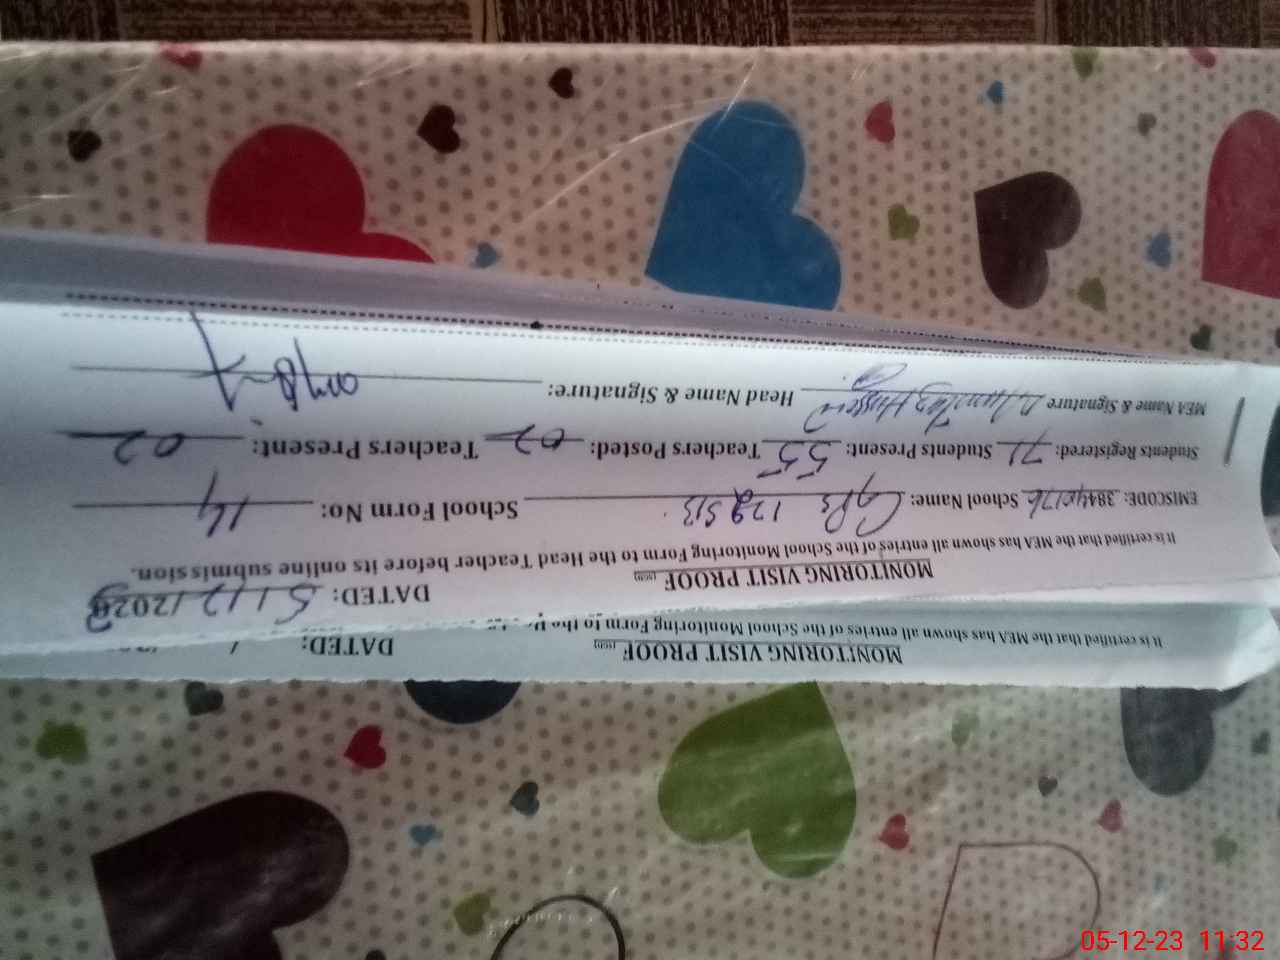 MONITORING VISIT PROOF DATED:
It is certified that the MEA has shown all entries of the School Monitoring Form to the
MONITORING VISIT PROOF DATED: 5/12/2023
It is certified that the MEA has shown all entries of the School Monitoring Form to the Head Teacher before its online submission.
EMISCODE: 384 School Name: GPS 128 SB School Form No: 14
Students Registered: 71 Students Present: 55 Teachers Posted: 02 Teachers Present: 02
MEA Name & Signature Hussain Head Name & Signature:
05-12-23 11:32